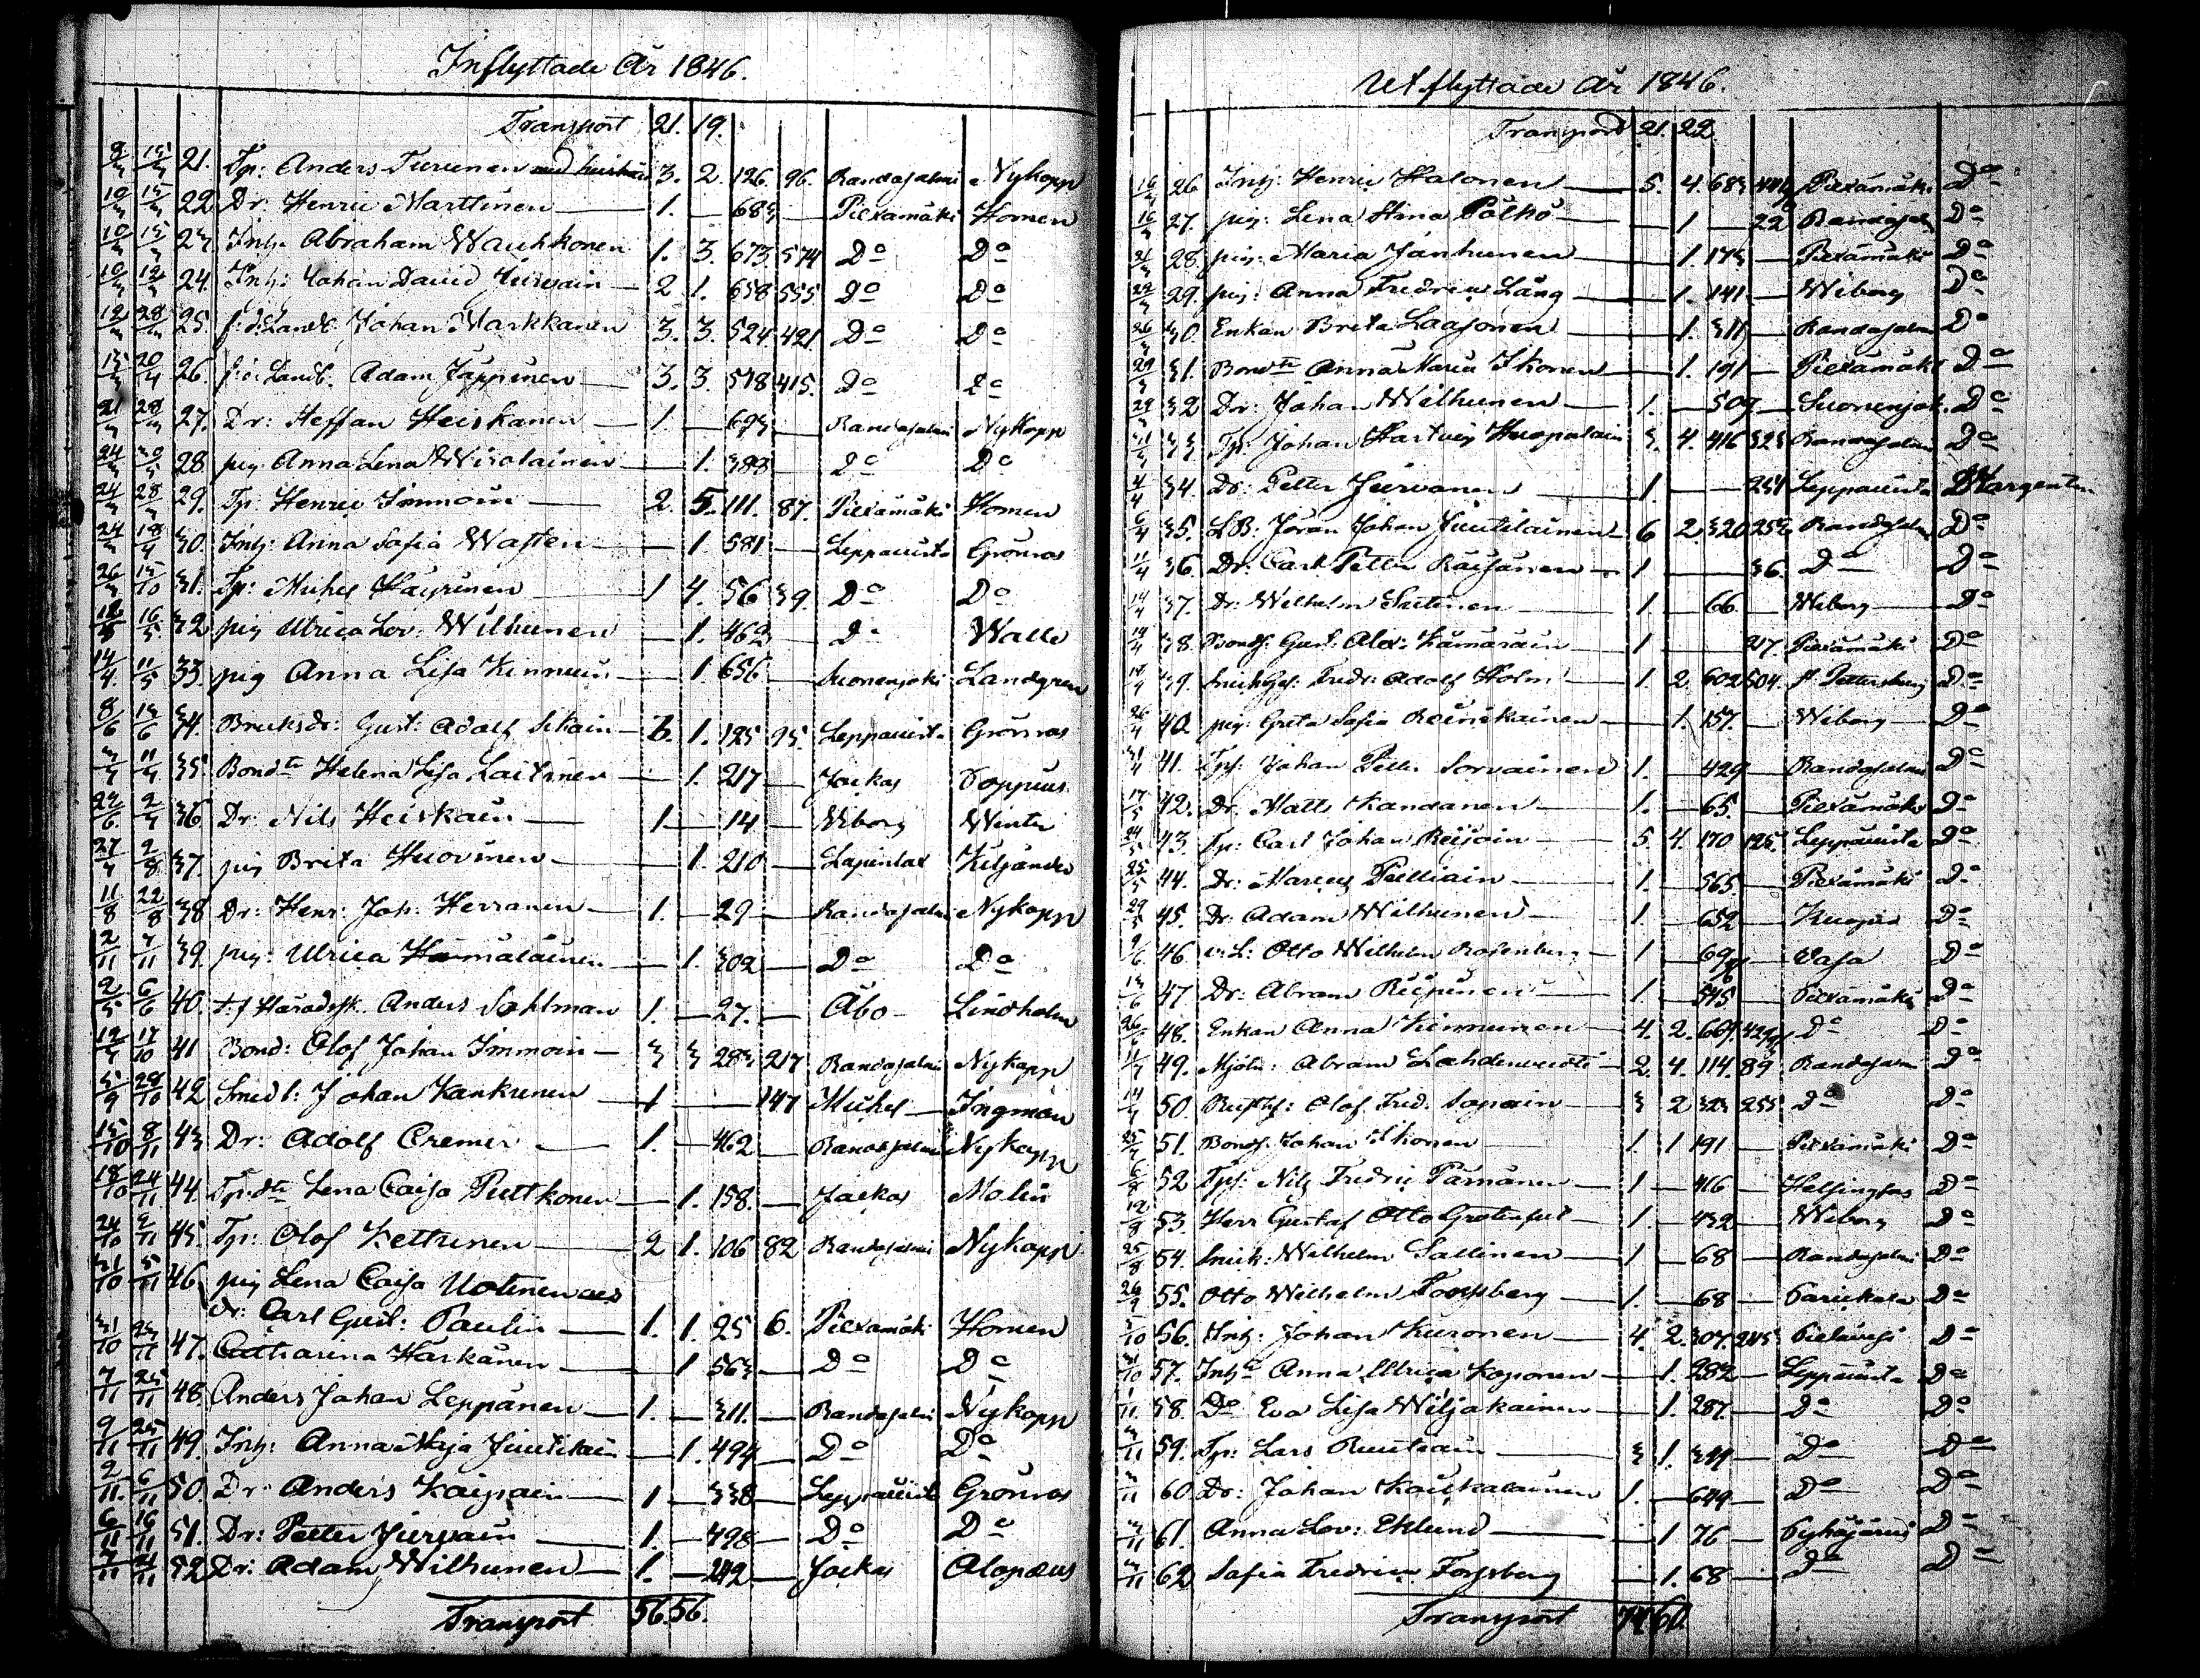 Inflyttade År 1846.
Transport 21. 19.
8/3 15/3 21. Tp: Anders Turunen med hustru 3. 2. 126. 96. Randasalmi Nykopp
10/3 15/3 22 Dr: Henric Marttinen 1. — 683 — Piexämäki Homen
10/3 15/3 23. Inh: Abraham Wauhkonen 1. 3. 673. 574 Do Do
10/3 12/3 24. Inh: Johan David Hirvoin 2. 1. 658 555 Do Do
12/3 28/3 25. f: d: Landb. Johan Markkanen 3. 3. 524 421 Do Do
20/4 26. f: d: Landb. Adam Jäppinen 3. 3. 518 415. Do Do
21/3 28/3 27. Dr: Steffan Heiskanen 1. — 693 — Randasalmi Nykopp
24/3 28 pig Anna Lena — 1. 383 — Do Do
24/3 28/3 29. Tp: Henric Immoin 2. 5. 111. 87. Piexämäki Homen
24/3 18/4 30. Inh: Anna Sofia Wasten — 1. 581 — Leppävirta Grönros
26/3 15/10 31. Tp: Michel Häyrinen 1 4. 56 39. Do Do
16/5 32 pig Ulrica Lov: Wilhunen — 1. 462 — Do Walle
14/4 11/5 33. pig Anna Lisa Kinnuin — 1. 656 — Suonenjoki Landgren
8/6 34. Bruksdr: Gust: Adolf Sikain 1. 125 95. Leppävirta Grönros
35. Bondtr Helena Lisa Laitinen — 1. 217 — Jockas Poppius
2/7 36 Dr: Nils Heiskain 1 — 14 — Wiborg Winter
27/7 2/8 37. pig Brita Huovinen — 1. 210 — Lapinlax Kiljander
11/8 22/8 38 Dr: Henr: Joh: Herranen 1. — 29 — Randasalmi Nykopp
2/11 7/11 39. pig: Ulrica Hämäläinen — 1. 302 — Do Do
2/5 6/6 40. t: f Häradssk. Anders Sahlman 1. — 27. — Åbo Lindholm
17/10 41 Bond: Olof Johan Immoin 3 3 283 217 Randasalmi Nykopp
5/9 28/10 42 Smed l: Johan Kankunen 1 — — 147 Michel Ingman
15/10 8/11 43 Dr: Adolf Cremer 1. — 462 — Randasalmi Nykopp
18/10 24/11 44. Tp: dtr Lena Caisa Puttkonen — 1. 158. — Jockas Molin
24/10 2/11 45. Tp: Olof Kettunen 2 1. 106 82 Randasalmi Nykopp
31/10 5/11 46 pig Lena Caisa Uotinen
Dr: Carl Gust: Paulin 1. 1. 25 6. Piexämäki Homen
31/10 23/11 47. Catharina Harkänen — 1 563 — Do Do
7/11 25/11 48. Anders Johan Leppänen 1. — 311. — Randasalmi Nykopp
9/11 25/11 49. Inh: Anna Maja Juutilain — 1. 494 — Do Do
2/11 6/11 50. Dr: Anders Kaipain 1 — 338 — Leppävirta Grönros
6/11 16/11 51. Dr: Petter Jürvain 1. — 498 — Do Do
7/11 24/11 52 Dr: Adam Wilhunen 1. — 242 — Jockas Alopæus
Transport 56. 56.
Utflyttade År 1846.
Transport 21. 22.
16/3 26. Inh: Henric Halonen 5. 4. 683 Piexämäki Do
16/3 27. pig: Lena Stina Pölkö — 1 — 22 Randasalmi Do
21/3 28. pig: Maria Janhunen — 1. 173 — Piexämäki Do
22/3 29. pig: Anna Fredrica Lång — 1. 141 — Wiborg Do
26/3 30. Enkan Brita Laasonen — 1. 311 — Randasalmi Do
29/3 31. Bondtr Anna Maria Ikonen — 1. 191 — Piexämäki Do
29/3 32 Dr: Johan Wilhunen 1. — 509 — Suonenjok. Do
31/3 33 Tp: Johan Hartvig Huopalain 3. 4. 416 323 Randasalmi Do
4/4 34. Dr: Petter Jürvanen 1. — — 254 Leppävirta
6/4 35. LB: Jöran Johan Juutilainen 6 2. 320 253 Randasalmi Do
11/4 36. Dr: Carl Petter Räisänen 1 — — 36. Do Do
14/4 37. Dr: Wilhelm Laitinen 1. — 66 — Wiborg Do
38. Bonds: Gust: Alex: Kämäräin 1 217. Piexämäki Do
39. Snickges. Fredr: Adolf Holm 1. 2 602 504. St Pettersburg Do
26/4 40. pig: Greta Sofia Roinikainen — 1. 157. — Wiborg Do
41. Tps: Johan Petter Sorvainen 1. — 429 — Randasalmi Do
17/5 42. Dr: Matts Kandanen 1. — 65 — Piexämäki Do
24/5 43. Tp: Carl Johan Reijoin 5. 4. 170 125. Leppävirta Do
25/5 44. Dr: Marcus Pulliain 1. — 565 — Piexämäki Do
29/5 45. Dr: Adam Wilhunen 1. — 652 — Kuopio Do
46. v: L: Otto Wilhelm Rosenberg 1 — — Vasa Do
13/6 47 Dr: Abram Riipinen 1. — 545 — Piexämäki Do
26/6 48. Enkan Anna Kinnunen 4. 2. Do Do
49. Mjöln: Abram Lahdenvesti 2. 4. 114. 89 Randasalmi Do
14/7 50. Olof Fred: Sopain 3 2 323 255 Do Do
25/7 51. Bonds: Johan Ikonen 1. 1 191 — Piexämäki Do
6/8 52 Tps: Nils Fredric Pärnänen 1 — 416 — Helsingfors Do
12/8 53. Herr Gustaf Otto Grotenfelt 1. — 432 — Wiborg Do
25/8 54. Snick: Wilhelm Sallinen 1 — 68 — Randasalmi Do
26/9 55. Otto Wilhelm Forssberg 1. — 68 — Parikala Do
56. Inh: Johan Kuronen 4. 2. 307. 245 Pielavesi Do
57. Inh: Anna Ulrica Koponen — 1. 282 — Leppävirta Do
58. Do Eva Lisa Wiljakainen — 1. 287. — Do Do
59. Tp: Lars Ruutiain 3 1. 344 — Do Do
60. Dr: Johan Kaukalainen 1. — 649 — Do Do
61. Anna Lov: Eklund — 1 76 — Pyhäjärvi Do
62 Sofia Fredrica Forssberg — 1. 68 — Do Do
Transport 74 60.